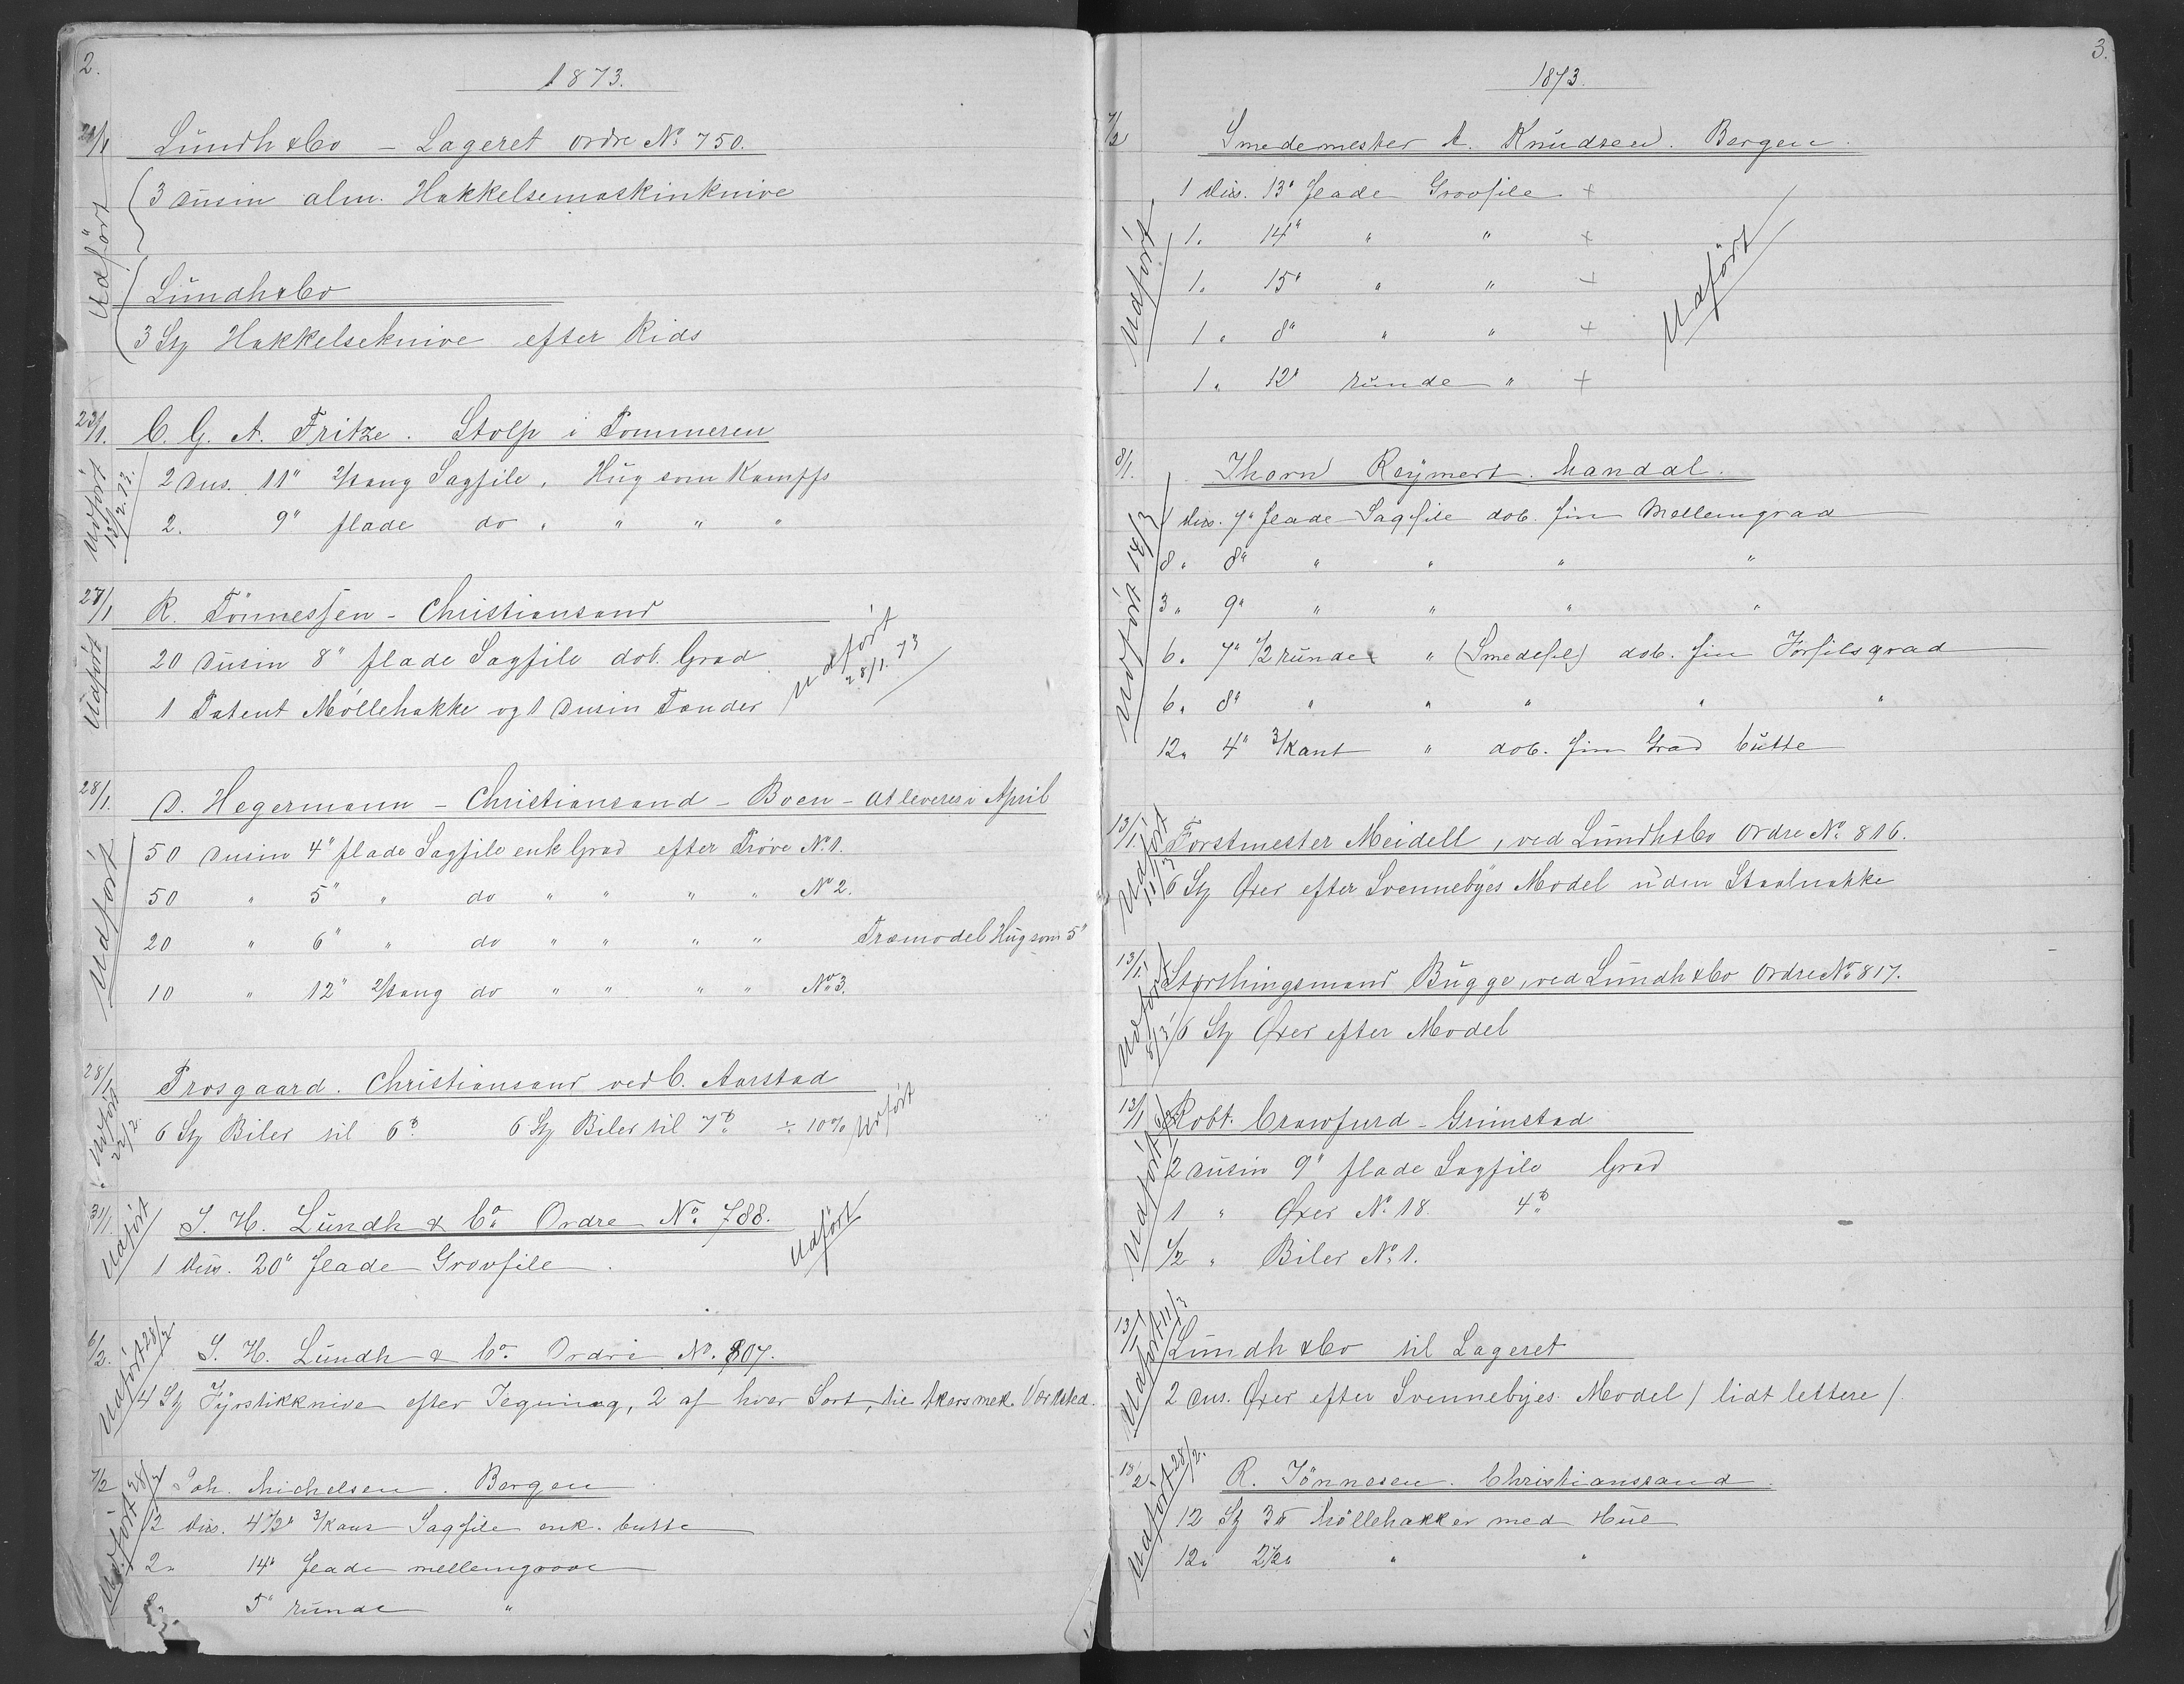 2.
1873.
Lündh & Co – Lageret Ordre No 750.
Udført
3 Dusin alm. Hakkelsemaskinknive
Lündh & Co
3 Stz Hakkelseknive efter Rids
23/1. C. G. A. Fritze. Stolp i Pommeren
Udført 13/2.73.
2 Dus. 11" 2/tang Sagfile, Hüg som Kampffs
2. 9" flade do " " " "
27/1 R. Tönnessen – Christiansand
Udført
20 Dusin 8" flade Sagfile dob. Grad
1 Patent Möllehakke og 1 Dusin Tænder
Udført 28/1.73
28/1. D. Hegermann – Christiansand – Boen – at leveres i April
Udført
50 Dusin 4" flade Sagfile enk Grad efter Prøve No 1.
50 " 5" " do " " " " No 2.
20 " 6" " do " " " " Træmodel Hüg som 5"
10 " 12" 2/tang do " " " " No 3.
28/1 Prosgaard. Christiansand ved C. Aarstad
Udført 22/2.
6 Stz Biler til 6 6 Stz Biler til 7 ÷ 10% Udført
31/1. J. H. Lündh & Co. Ordre No. 788.
Udført
1 Düs. 20" flade Grovfile. Udført
6/2. J. H. Lündh & Co. Ordre No. 807.
Udført 28/2
4 Stz Fÿrstikknive efter Tegning, 2 af hver Sort, til Akers mek. Værksted.
7/2 Joh. Michelsen. Bergen
Udført 28/2
12 Düs. 4½" 3/kant Sagfile enk. butte
2 " 14" flade mellemgrove
5" runde "
3.
1873.
7/2 Smedemester A. Knüdsen. Bergen.
Udført
1 Düs. 13" flade Grovfile +
1 " 14" " " +
1 " 15" " " +
1 " 8" " " +
1 " 12" ründe " +
Udført
8/1. Thorn Reÿmert. Mandal.
Udført 14/3
Düs. 7" flade Sagfile dob. fin Mellemgrad
8 " 8" " " " "
3 " 9" " " " "
6 " 7" 1/2 ründe " (Smedefil) dob. fin Forfilsgrad
6 " 8" " " " " "
12 " 4" 3/kant " dob. fin Grad bütte
13/1. Forstmester Meidell, ved Lündh & Co Ordre No 816.
Udført 11/3
6 Stz Øxer efter Svennebÿes Model üden Staalnakke
13/1. Storthingsmand Bügge, ved Lündh & Co Ordre No 817.
Udført 8/3
6 Stz Øxer efter Model
13/1 Robt. Crawfurd – Grimstad
Udført
2 Dusin 9" flade Sagfile Grad
1 " Øxer No 18. 4
1/2 " Biler No 1.
13/1 Lündh & Co til Lageret
Udført 11/3
2 Dus. Øxer efter Svennebÿes Model / lidt lettere /.
13/2 R. Tönnesen. Christianssand.
Udført 28/2.
12 Stz 3 Möllehakker med Hül
12 " 2½ " "